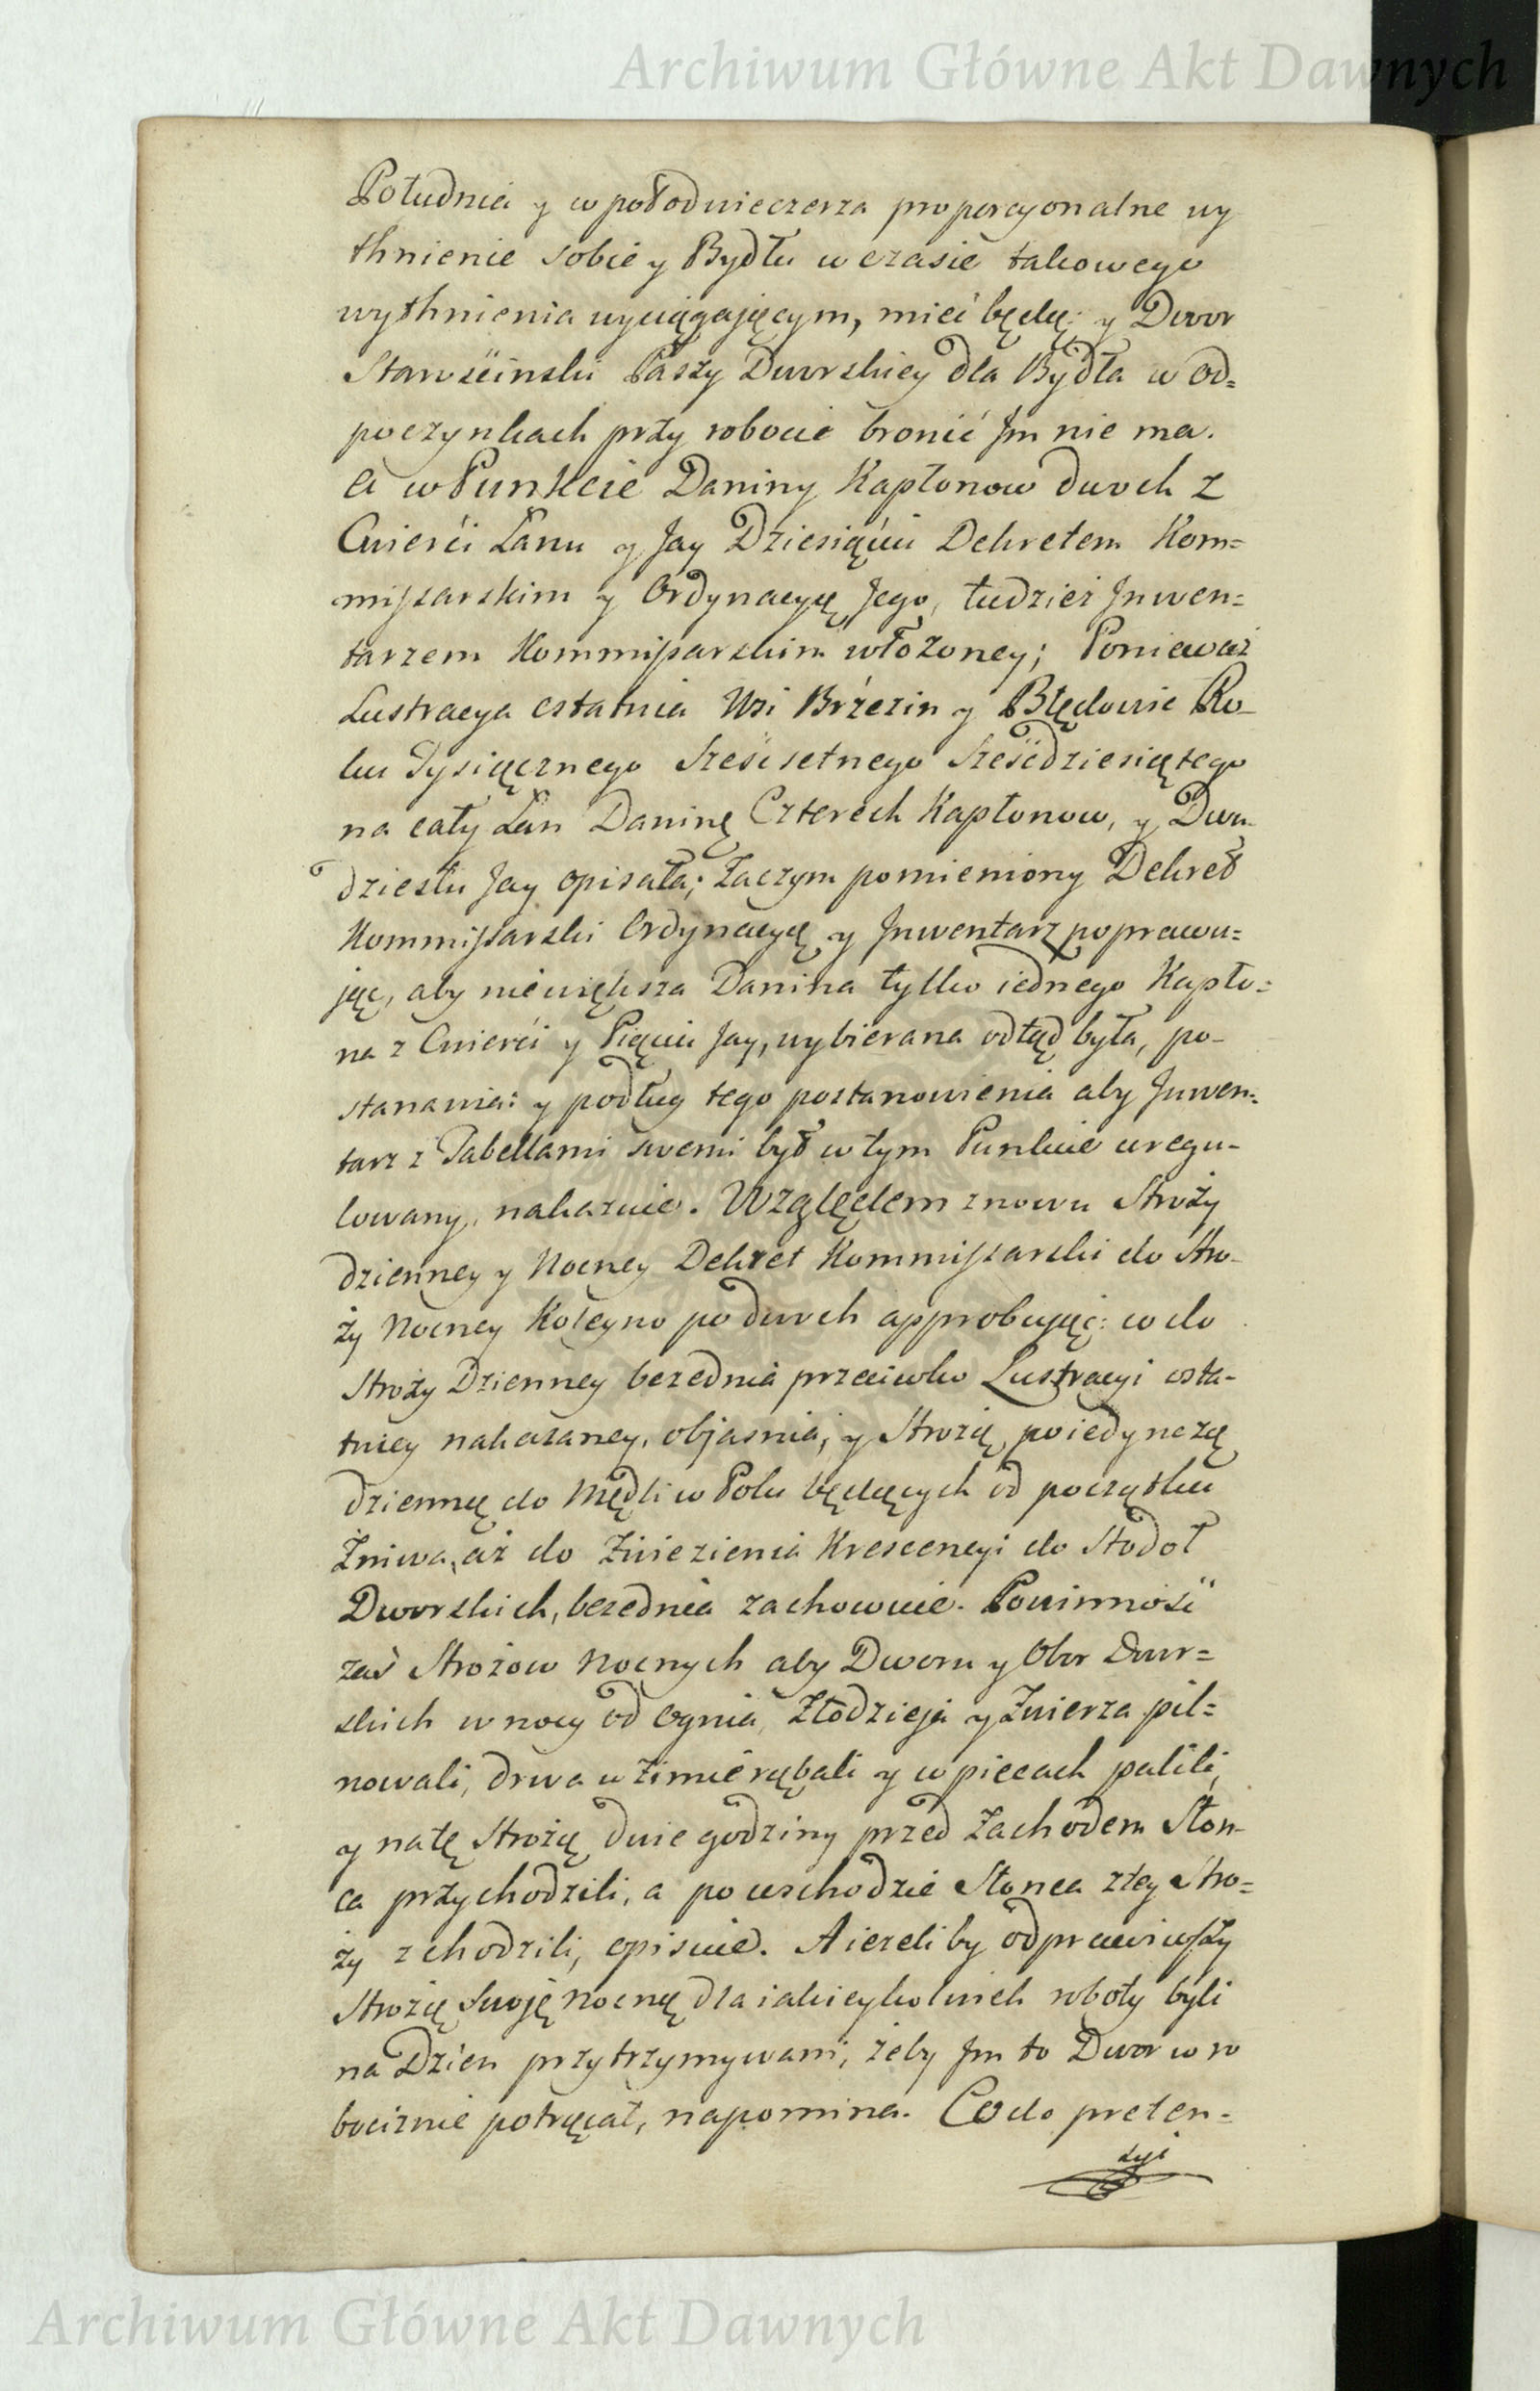 Archiwum Główne Akt Dawnych
Południa y w połodwieczerza proporcyonalne wy
thnienie sobie y Bydłu w czasie takowego
wythnienia wyciągaiącym, mieć będą: y Dwor
Starościnski Paszy Dworskiey dla Bydła w od=
poczynkach przy robocie bronić Jm nie ma.
A w Punkcie Daniny Kapłonow dwoch z
Cwierći Łanu y Jay Dziesiąćiu Dekretem Kom=
missarskim y Ordynacyą Jego, tudzież Jnwen=
tarzem Kommissarskim włożoney; Ponieważ
Lustracya ostatnia Wsi Brzezin y Błędowie Ro-
ku Tysiącznego Sześćsetnego Sześćdziesiątego
na cały Łan Daninę Czterech Kapłonow, y Dwu-
dziestu Jay opisała; Zaczym pomieniony Dekret
Kommissarski Ordynacyą y Jnwentarz poprawu=
jąc, aby niewiększa Danina tylko iednego Kapło=
na z Cwierći y Pięciu Jay, wybierana odtąd była, po-
stanawia: y podług tego postanowienia aby Jnwen=
tarz z Tabellami swemi był w tym Punkcie uregu-
lowany, nakazuie. Względem znowu Stroży
dzienney y Nocney Dekret Kommissarski do Stro-
ży Nocney Koleyno po dwoch approbując: co do
Stroży Dzienney bezednia przeciwko Lustracyi osta-
tniey nakazaney, objasnia, y Strożą poiedynczą
dzienną do Mędli w Polu będących od początku
Żniwa, aż do Zwiezienia Krescencyi do Stodoł
Dworskich, bezednia zachowuie. Powinność
zaś Strożow Nocnych aby Dworu y Obor Dwor=
skich w nocy od Ognia, Złodzieja y Zwierza pil=
nowali, drwa w zimie rąbali y w piecach palili,
y na tę Strożą dwie godziny przed Zachodem Słon-
ca przychodzili, a po wschodzie Słonca z tey Stro=
ży zchodzili, opisuie. A ieżeliby odprawiwszy
Strożą Swoję nocną dla iakieykolwiek roboty byli
na Dzien przytrzymywani, żeby Jm to Dwor w ro
bociznie potrącał, napomina. Co do preten=
syi
Archiwum Główne Akt Dawnych